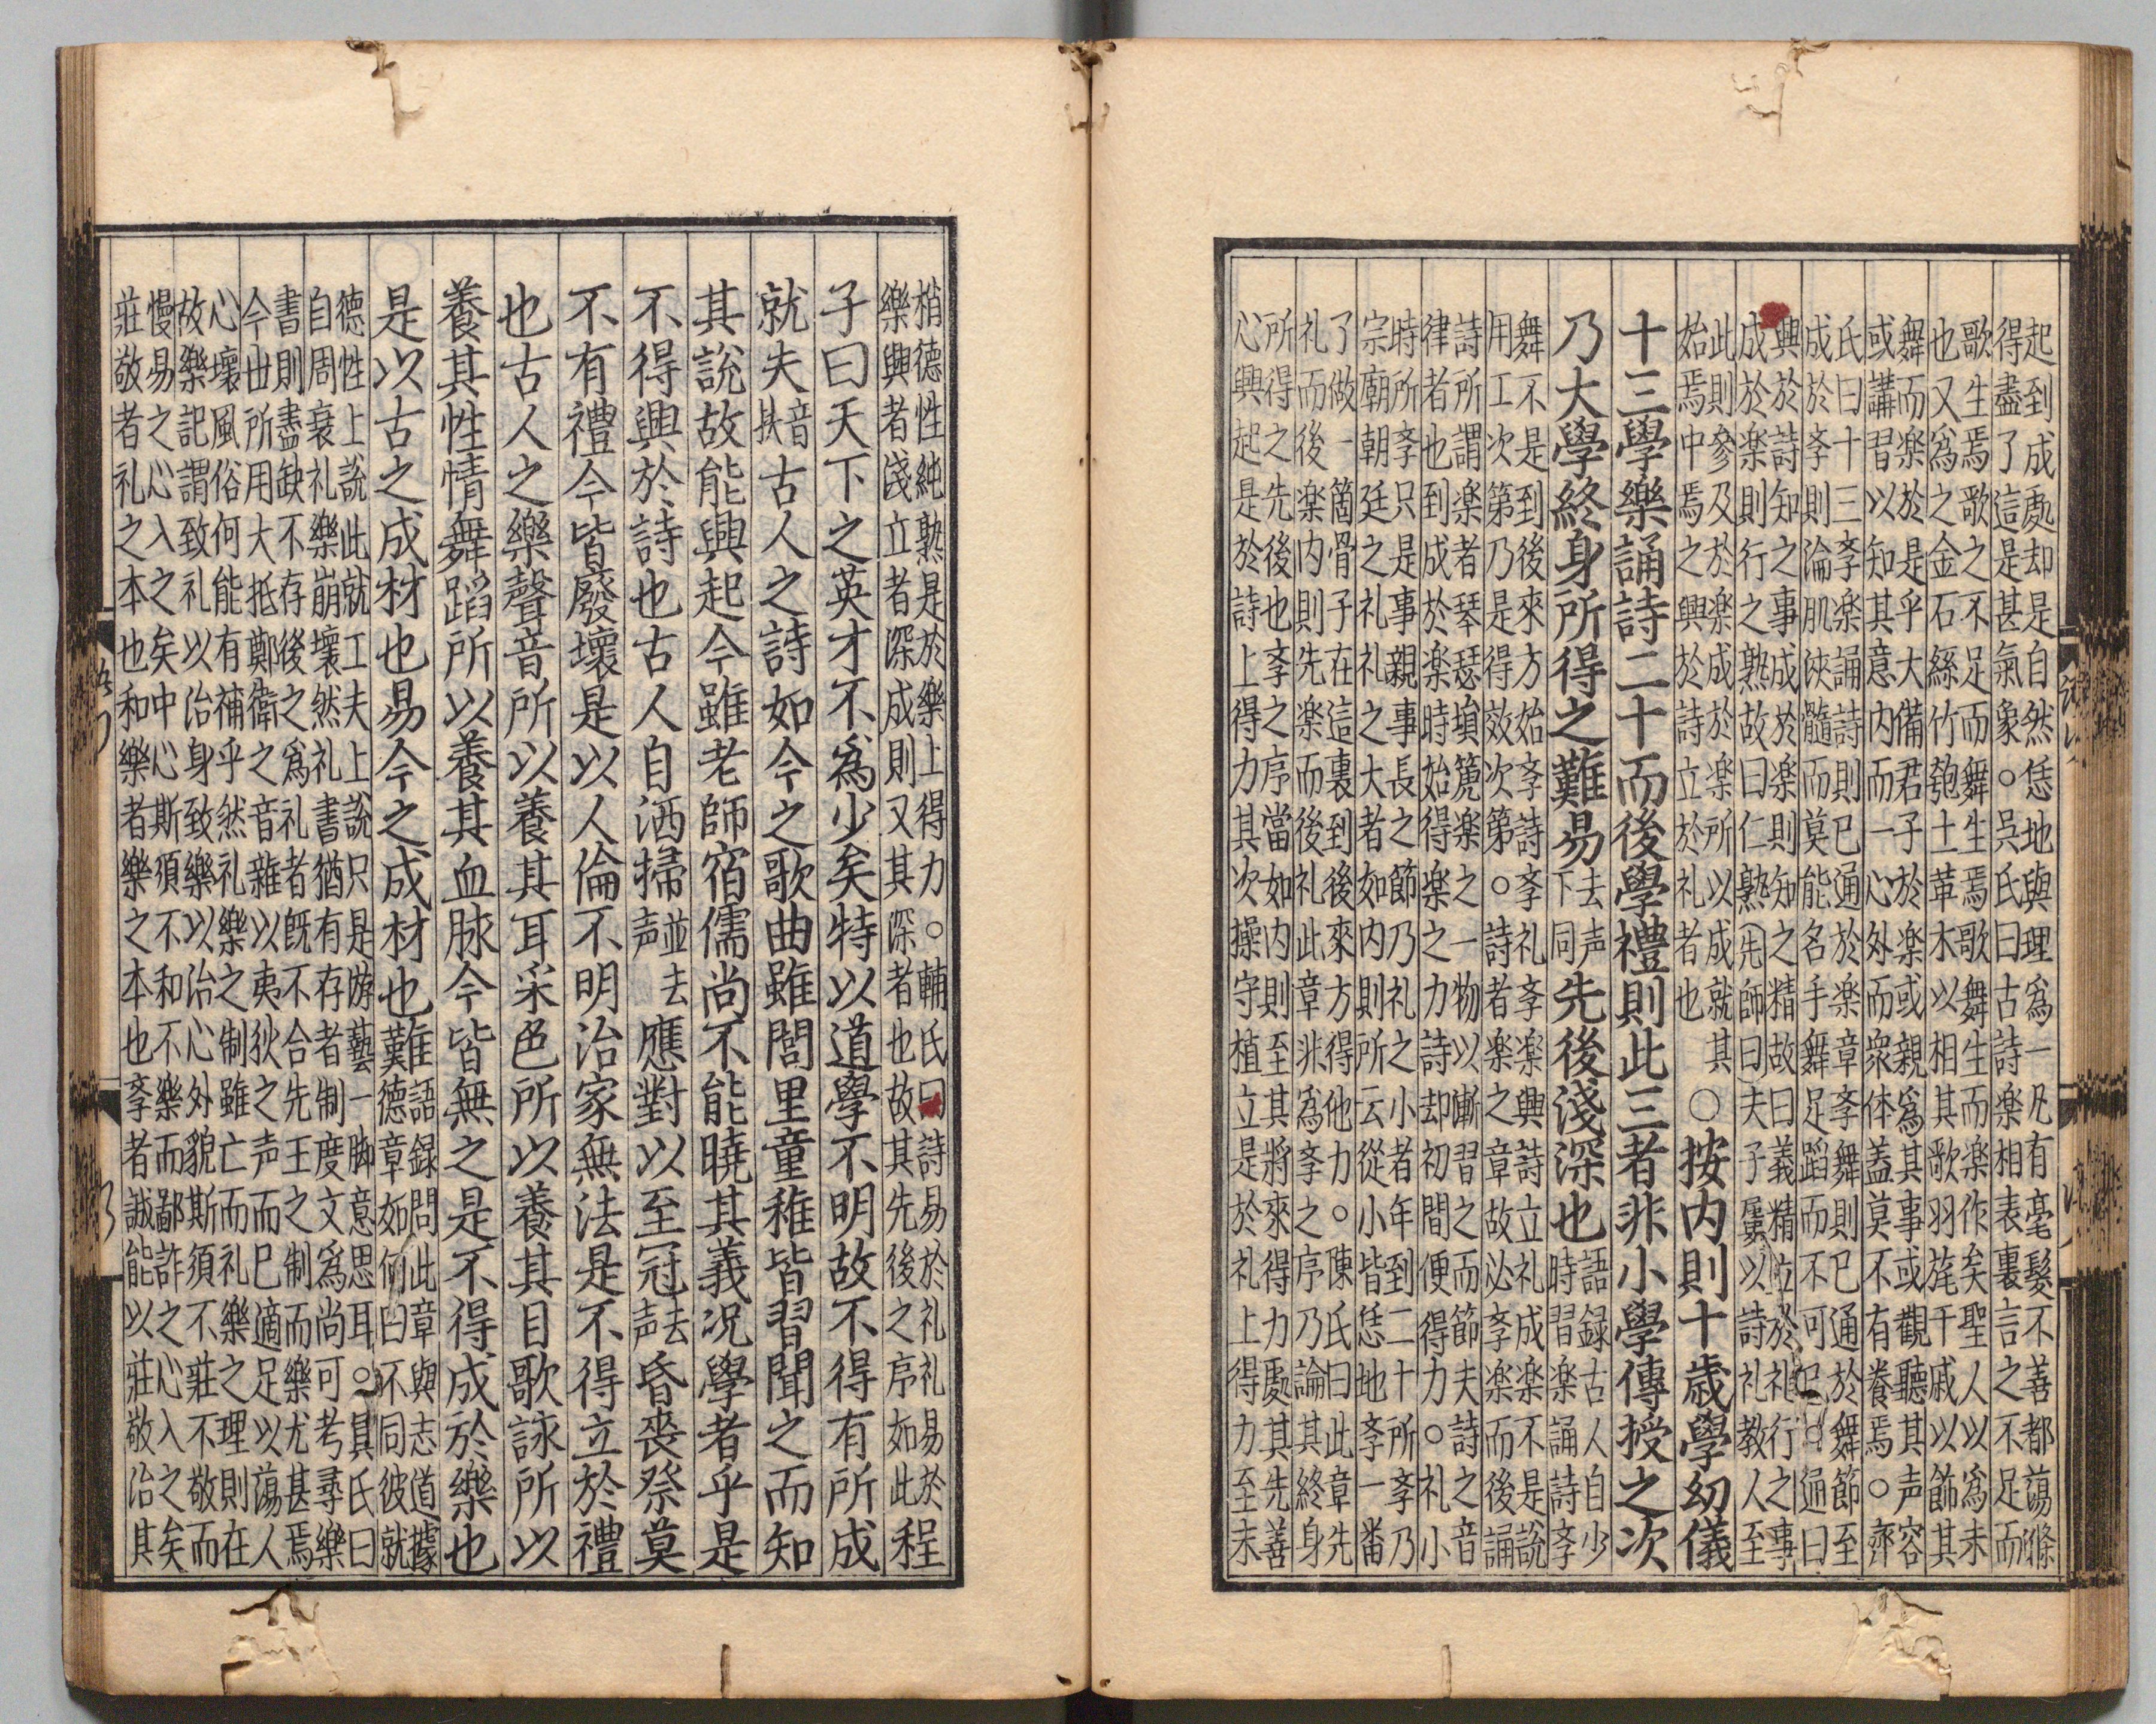 起到成處却是自然恁地與理爲一凡有毫髮不善都蕩滌
得盡了這是甚氣象○吳氏曰古詩楽相表裏言之不足而
歌生焉歌之不足而舞生焉歌舞生而楽作矣聖人以爲未
也又爲之金石絲竹匏土革木以相其歌羽旄干戚以飾其
舞而楽於是乎大備君子於楽或親爲其事或觀聽其声容
或講習以知其意内而一心外而衆体蓋莫不有養焉○齊
氏曰十三斈楽誦詩則已通於楽章斈舞則已通於舞節至
成於斈則淪肌浹髓而莫能名手舞足蹈而不可已○通曰
興於詩知之事成於楽則知之精故曰義精立於礼行之事
成於楽則行之熟故曰仁熟先師曰夫子屢以詩礼教人至
此則參及於楽成於楽所以成就其
始焉中焉之興於詩立於礼者也
○按内則十歳學幼儀
十三學樂誦詩二十而後學禮則此三者非小學傳授之次
乃大學終身所得之難易去声下同先後淺深也語録古人自少
時習楽誦詩斈
舞不是到後來方始斈詩斈礼斈楽興詩立礼成楽不是説
用工次第乃是得效次第○詩者楽之章故必斈楽而後誦
詩所謂楽者琴瑟塤箎楽之一物以漸習之而節夫詩之音
律者也到成於楽時始得楽之力詩却初間便得力○礼小
時所斈只是事親事長之節乃礼之小者年到二十所斈乃
宗廟朝廷之礼礼之大者如内則所云從小皆恁地斈一畨
了做一箇骨子在這裏到後來方得他力○陳氏曰此章先
礼而後楽内則先楽而後礼此章非為斈之序乃論其終身
所得之先後也斈之序當如内則至其將來得力處其先善
心興起是於詩上得力其次操守植立是於礼上得力至末
梢德性純熟是於樂上得力○輔氏曰詩易於礼礼易於
樂興者淺立者深成則又其深者也故其先後之序如此
程
子曰天下之英才不爲少矣特以道學不明故不得有所成
就夫音扶古人之詩如今之歌曲雖閭里童稚皆習聞之而知
其說故能興起今雖老師宿儒尚不能曉其義況學者乎是
不得興於詩也古人自洒掃並去声應對以至冠去声昏喪祭莫
不有禮今皆廢壞是以人倫不明治家無法是不得立於禮
也古人之樂聲音所以養其耳采色所以養其目歌詠所以
養其性情舞蹈所以養其血脉今皆無之是不得成於樂也
是以古之成材也易今之成材也難語録問此章與志道據
德章如何曰不同彼就
德性上說此就工夫上說只是游藝一脚意思耳○真氏曰
自周衰礼樂崩壞然礼書猶有存者制度文爲尚可考尋樂
書則盡缺不存後之爲礼者既不合先王之制而樂尤甚焉
今世所用大抵鄭衛之音雜以夷狄之声而已適足以蕩人
心壞風俗何能有補乎然礼樂之制雖亡而礼樂之理則在
故樂記謂致礼以治身致樂以治心外貌斯須不莊不敬而
慢易之心入之矣中心斯須不和不樂而鄙詐之心入之矣
莊敬者礼之本也和樂者樂之本也斈者誠能以莊敬治其